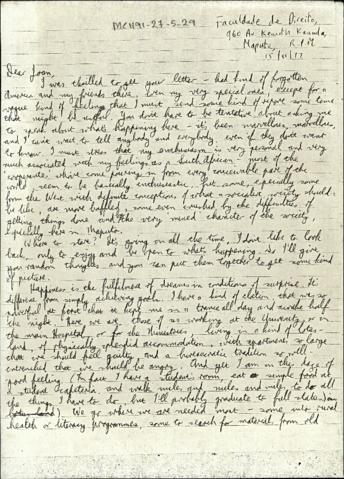 MCH91-27-5-29
Faculdade de Direito,
960 Av Kenneth Kaunda,
Maputo, R.P.M
Dear Joan,
I was thrilled to get your letter - had kind of forgotten
America and my friends there, even my very special ones, except for a
vague kind of feeling that I must send some kind of report some time
that might be useful. You don't have to be tentative about asking me
to speak about what's happening here - it's been marvellous, marvellous,
and I can't wait to tell anybody and everybody, even if they don't want
to know. I must stress that my enthusiasm is very personal and very
much associated with my feelings as a South African - most of the
cooperantes who come pouring in from every conceivable part of the
world seem to be basically enthusiastic, but some, especially some
from the West with definite conceptions of what socialist society should
be like, are more baffled, some even crushed by the difficulties of
getting things done and the very mixed character of the society,
especially here in Maputo.
Where to start? It's going on all the time, I don't like to look
back, only to enjoy and be open to what's happening. So I'll give
you random thoughts, and you can put them together to get some kind
of picture.
Happiness is the fulfilment of dreams in conditions of surprise. It's
different from simply achieving goals. I have a kind of elation that was so
powerful at first that it kept me in a tranced all day and awake half
the night. Here we are, those of us working at the University, or in
the main Hospital, or for the Ministries, living in a kind of
land of physically splendid accommodation, with apartments so large
that we should feel guilty, and a bureaucratic tradition so well
entrenched that we should be angry. And yet I am in the days of
good feeling (in fact I have a student's room, eat simple food at
student cafeteria and walk miles and miles and miles to do all
the things I have to do, but I'll probably graduate to full status soon
). We go where we are needed most - some into rural
health or literacy programmes, some to search for material from old